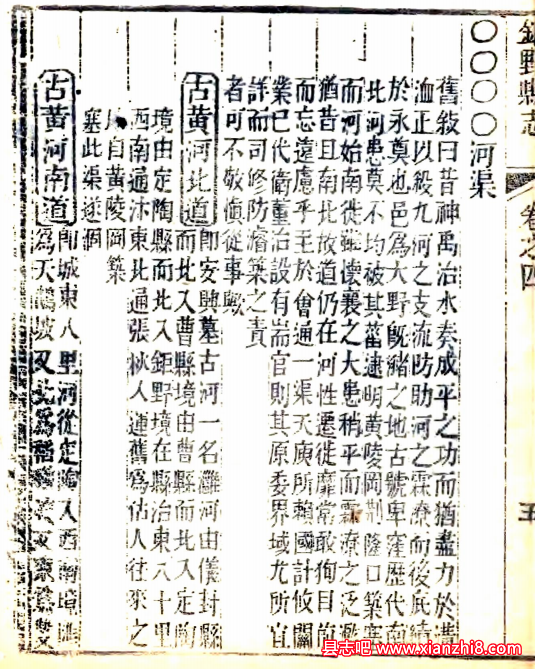 鉅野縣志
卷之四
五
〇〇〇〇河渠
舊敍曰昔神禹治水奏成平之功而猶盡力於溝
洫正以殺九河之支流防助河之霖潦而後底績
於永奠也邑爲大野旣豬之地古號卑窪歷代南
北河患莫不均被其菑逮明黄陵岡荆隆口築塞
而河始南徙雖懷襄之大患稍平而霖潦之泛濫
猶昔且南北故道仍在河性遷徙靡常敢徇目前
而忘遠慮乎至於會通一渠天庾所賴國計攸關
業已代衛董治設有耑官則其原委界域尤所宜
詳而司修防濬築之責
者可不敬慎從事歟
古黄河北道 卽安興墓古河一名灉河由儀封縣
而北入曹縣境由曹縣而北入定陶
境由定陶縣而北入鉅野境在縣治東八十里
西南通沭東北通張秋人運舊爲估人往來之
自黄陵岡築
塞此渠遂涸
古黄河南道 卽城東八里河從定陶入西南境
爲天鵝坡又北爲